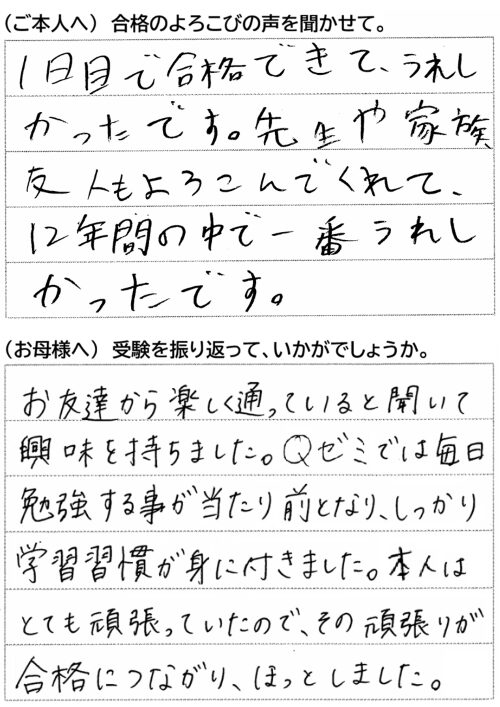 （ご本人へ）合格のよろこびの声を聞かせて。
1日目で合格できて、うれし
かったです。先生や家族
友人もよろこんでくれて、
12年間の中で一番うれし
かったです。
（お母様へ）受験を振り返って、いかがでしょうか。
お友達から楽しく通っていると聞いて
興味を持ちました。Qゼミでは毎日
勉強する事が当たり前となり、しっかり
学習習慣が身に付きました。本人は
とても頑張っていたので、その頑張りが
合格につながり、ほっとしました。